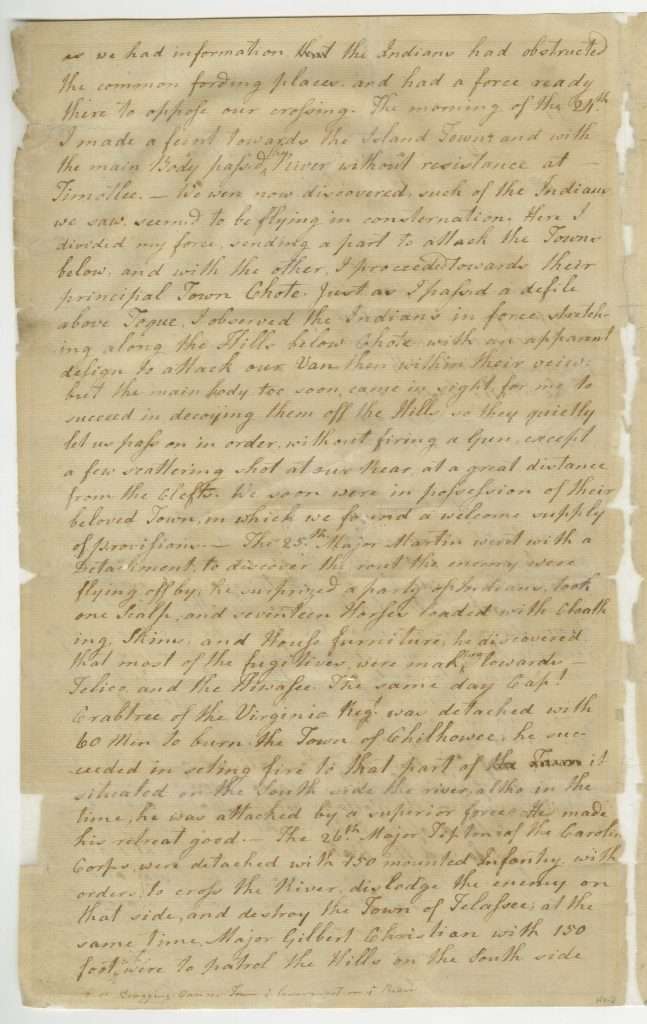 as we had information that the Indians had obstructed
the common fording places, and had a force ready
there to oppose our crossing. The morning of the 24th
I made a feint towards the Island Town, and with
the main Body passd, ye River without resistance at —
Timotlee. — We were now discovered, such of the Indians
we saw, seem'd to be flying in consternation. Here I
divided my force, sending a part to attack the Towns
below, and with the other, I proceeded towards their
principal Town Chote. Just as I passd a defile
above Toque, I observed the Indians in force stretch-
ing along the Hills below Chote with an apparent
design to attack our Van then within their veiw;
but the main body too soon, came in sight for me to
succeed in decoying them off the Hills so they quietly
let us pass on in order, without firing a Gun, except
a few scattering shot at our Rear, at a great distance
from the Clefts. We soon were in possession of their
beloved Town, in which we found a welcome supply
of provisions. — The 25th Major Martin went with a
Detachment, to discover the rout the enemy were
flying off by; he surprized a party of Indians, took
one Scalp, and seventeen Horses loaded with Cloath
ing, Skins, and House furniture; he discovered
that most of the fugitives, were making towards —
Telico, and the Hiwasee. The same day Capt.
Crabtree of the Virginia Regt. was detached with
60 Men to burn the Town of Chilhowee, he suc-
ceeded in seting fire to that part of the Town it
situated on the South side the river, altho in the
time, he was attacked by a superior force. He made
his retreat good. — The 26th Major Tipton of the Carolin
Corps, were detached with 150 mounted Infantry, with
orders, to cross the River, dislodge the enemy on
that side, and destroy the Town of Telassee; at the
same time, Major Gilbert Christian with 150
foot, were to patrol the Hills on the South side